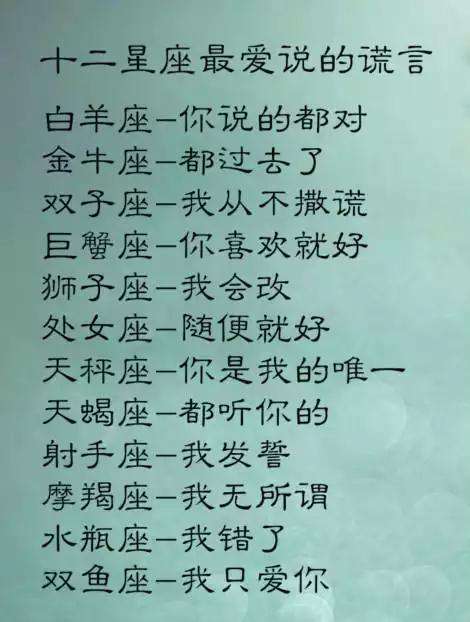 十二星座最爱说的谎言
白羊座–你说的都对
金牛座–都过去了
双子座–我从不撒谎
巨蟹座–你喜欢就好
狮子座–我会改
处女座–随便就好
天秤座–你是我的唯一
天蝎座–都听你的
射手座–我发誓
摩羯座–我无所谓
水瓶座–我错了
双鱼座–我只爱你